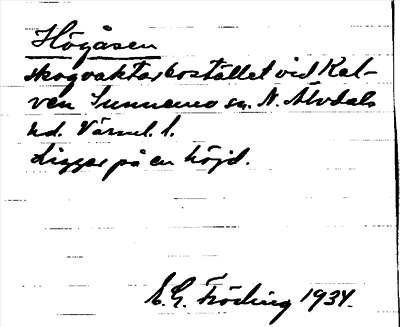 Högåsen
skogvaktarbostället vid Kal-
ven Sunnemo sn. N. Älvdals
hd. Värml. l.
Ligger på en höjd.
E. G. Fröding 1934.